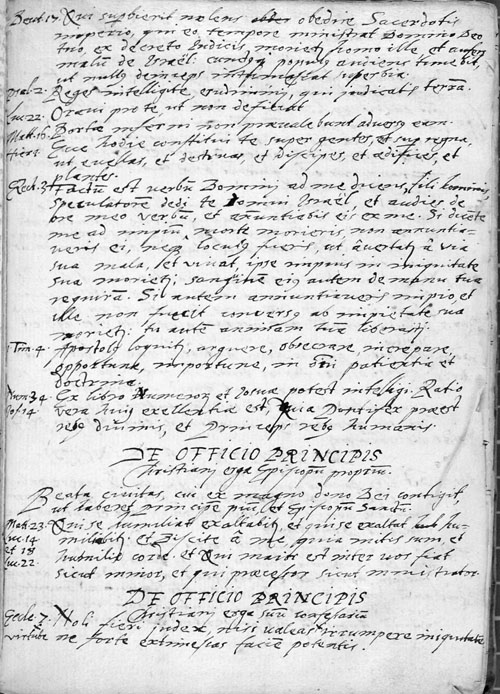 Deut 17. Qui superbierit nolens obedire Sacerdotis
imperio, qui eo tempore ministrat Domino Deo
tuo, ex decreto Iudicis, morietur homo ille, et auferes
malum de Israël: cunctusq. populus audiens timebit,
ut nullus deinceps intumescat superbia.
Psal. 2. Reges intelligite, erudimini, qui judicatis terram.
Luc. 22. Oravi pro te, ut non deficiat
Matt. 16. Portae inferni non praevalebunt adversus eam.
Hier. 1. Ecce hodie constitui te super gentes, et super regna,
ut evellas, et destruas, et dissipes, et aedifices, et
plantes.
Ezech. 3. Factum est verbum Domini ad me dicens, fili hominis,
speculatorem dedi te Domini Israël, et audies de
ore meo verbum, et annuntiabis eis ex me. Si dicente
me ad impium, morte morieris, non annuntia-
veris ei, neq. locutus fueris, ut avertatur à via
sua mala, et vivat, ipse impius in iniquitate
sua morietur; sanguinem eius autem de manu tua
requiram. Si autem annuntiaveris impio, et
ille non fuerit conversus ab impietate sua
morietur: tu autem animam tuam liberasti.
1 Tim. 4. Apostolus loquitur, arguere, obsecrare, increpare,
opportune, importune, in omni patientia et
doctrina.
Num. 34. Ex libro Numeror. et Iosue potest intelligi. Ratio
Ios. 14 vera huius excellentiae est, Quia Pontifex praeest
rebus divinis, et Princeps rebus humanis.
DE OFFICIO PRINCIPIS
Christiani erga Episcopum proprium.
Beata civitas, cui ex magno dono Dei contigit,
ut haberet principem pium, et Episcopum Sanctum.
Mat. 23. Qui se humiliat exaltabitur, et qui se exaltat hu-
Luc. 14 miliabitur. et Discite à me, quia mitis sum, et
et 18 humilis corde. et Qui maior est inter vos fiat
Luc. 22. sicut minor, et qui praecessor sicut ministrator.
DE OFFICIO PRINCIPIS
Christiani erga suum confessarium
Eccle. 7. Noli fieri iudex, nisi valeas irrumpere iniquitates
virtute ne forte extimescas faciem potentis.